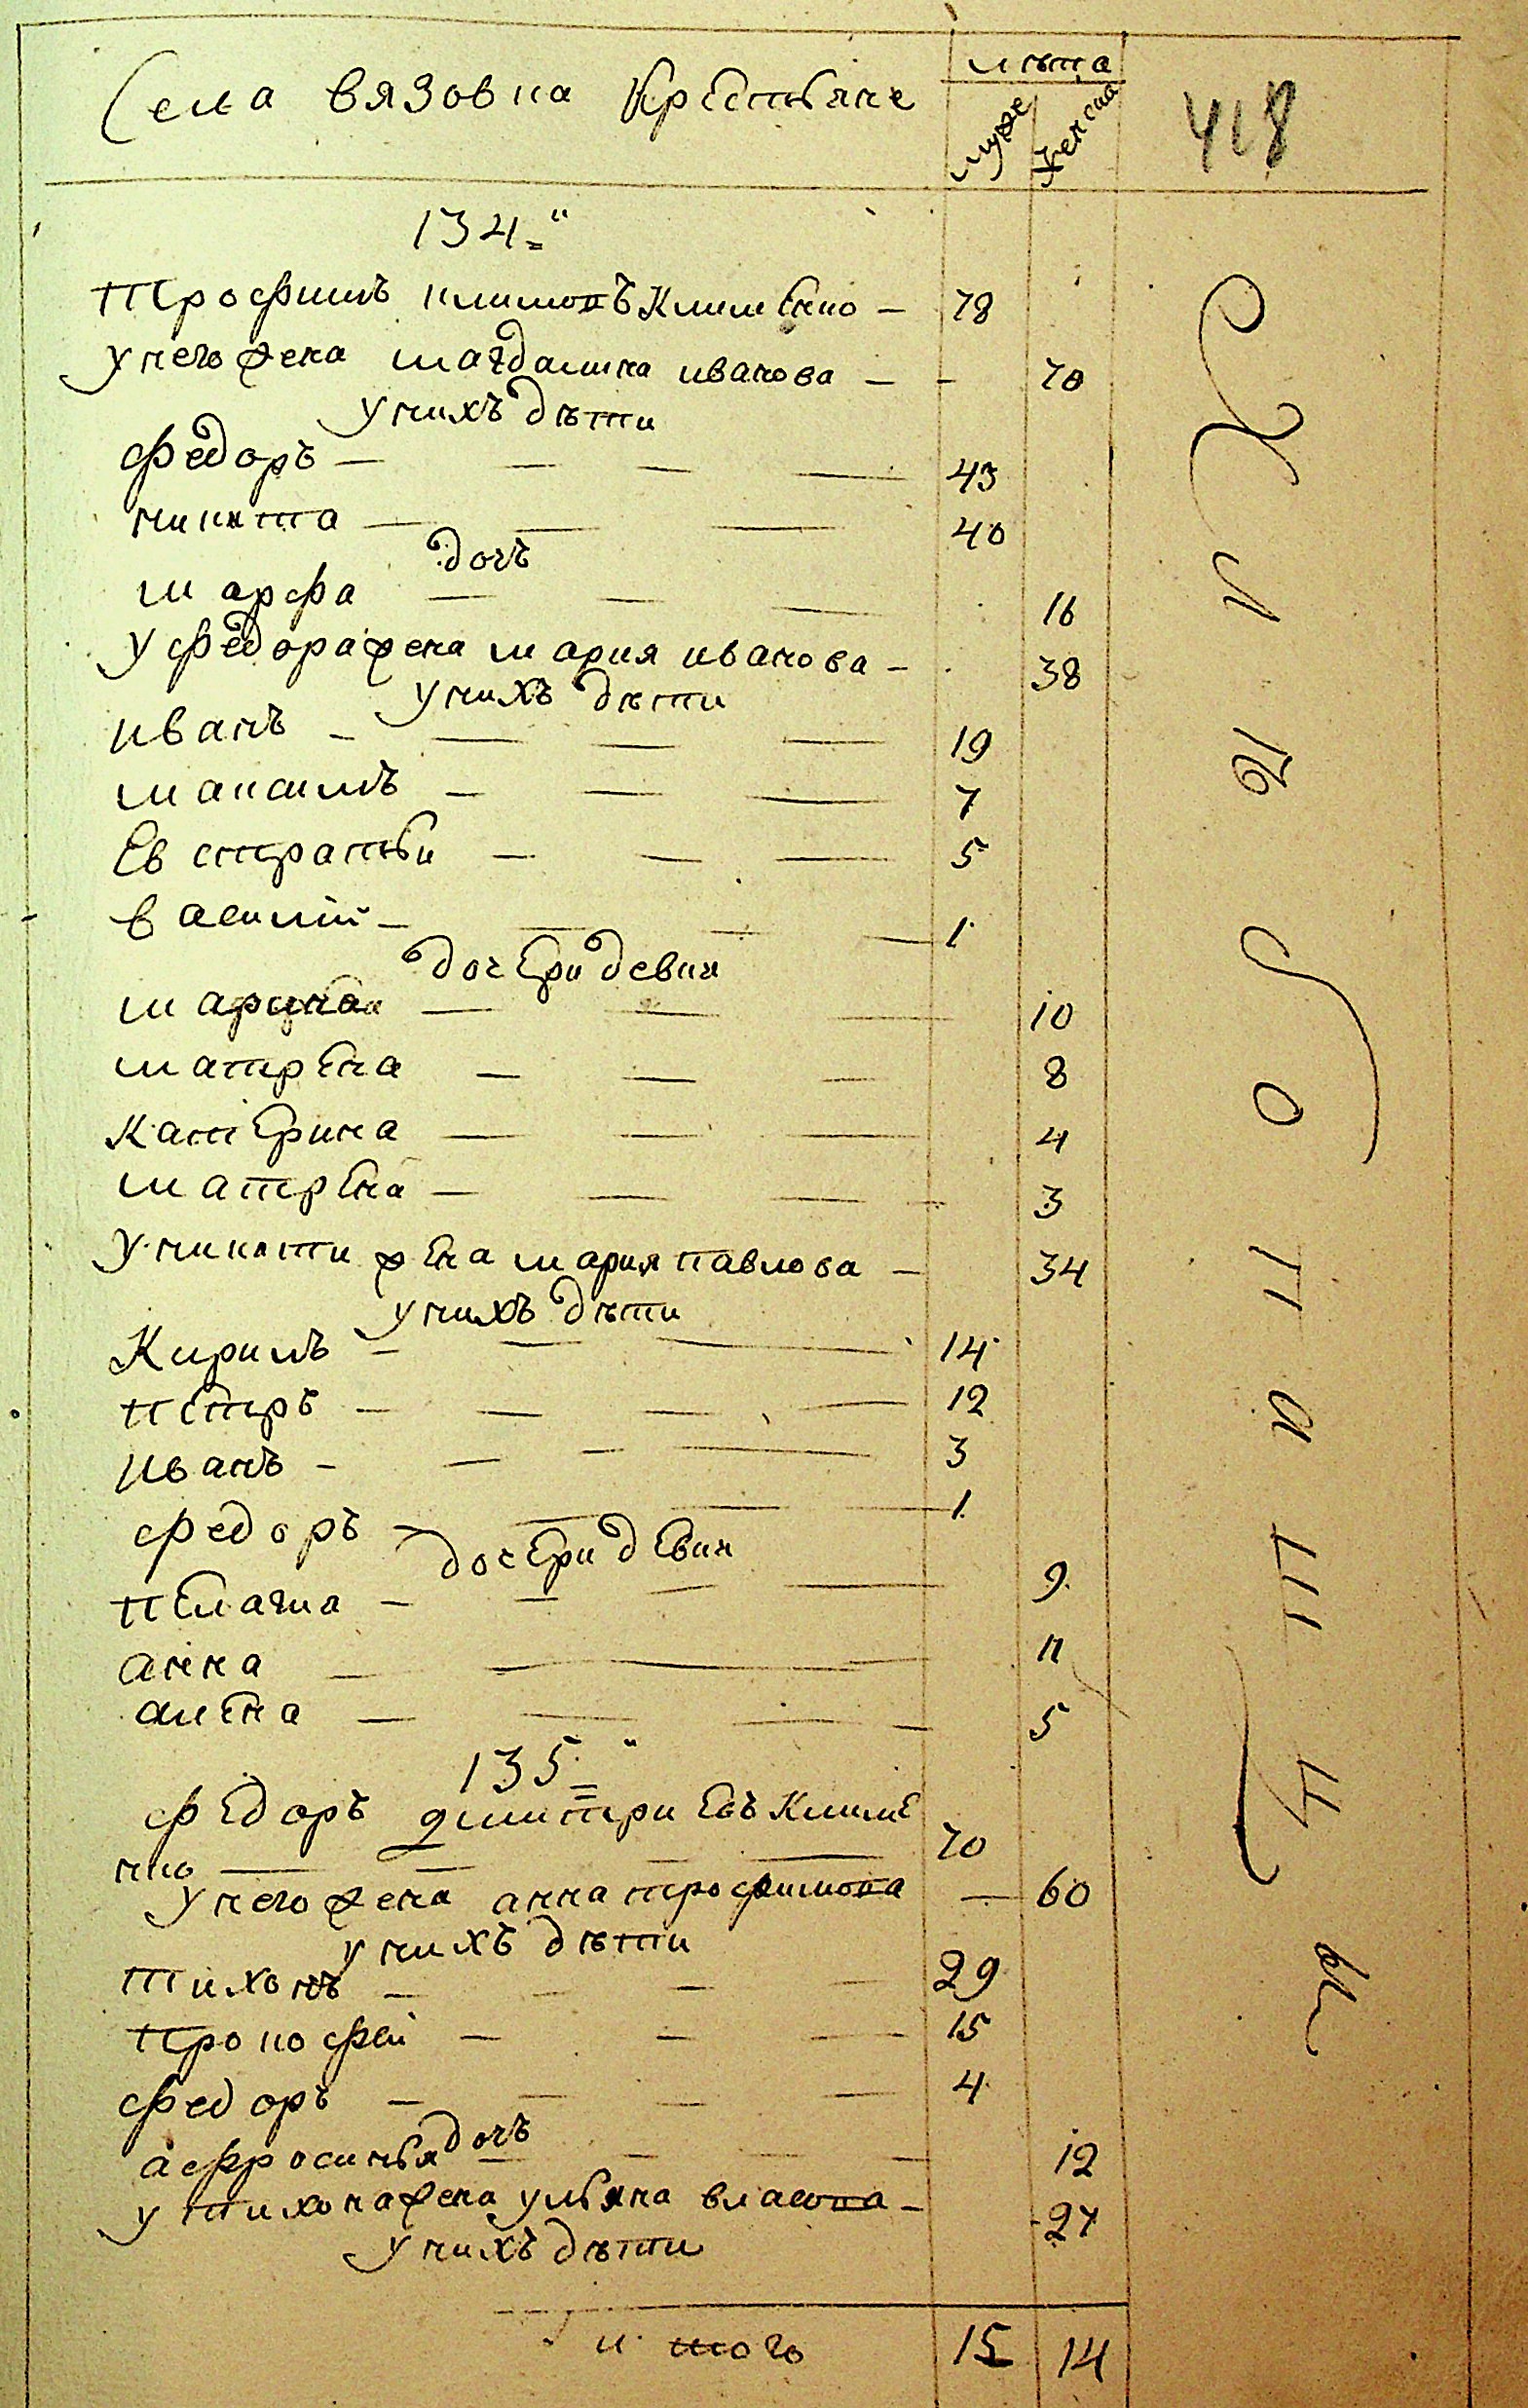 Села вязовка Крестьяне
лѣта
муже
женска
418
134
трофимъ климовъ Клименко — 78
у него жена магдалина иванова — — 70
у нихъ дѣти
федоръ — — — — 43
никита — — — 40
дочь
марфа — — — 16
у федора жена мария иванова — 38
у нихъ дѣти
иванъ — — — — 19
максимъ — — — 7
Евстратьи — — — 5
василий — — — — 1
дочери девки
марина — — — 10
матрена — — — 8
катерина — — — 4
матрена — — — — 3
у никити жена мария павлова — 34
у нихъ дѣти
Кирилъ — — — 14
петръ — — — — 12
иванъ — — — — 3
федоръ — — — — 1
дочери девки
пелагиа — — — — 9
анна — — — 11
алена — — — — 5
135
федоръ дмитриевъ Климе
нко — — — — 70
у него жена анна трофимова — 60
у нихъ дѣти
тихонъ — — — 29
прокофей — — — 15
федоръ — — — — 4
дочь
афросинья — — — 12
у тихона жена ульяна власова — 27
у нихъ дѣти
и того 15 14